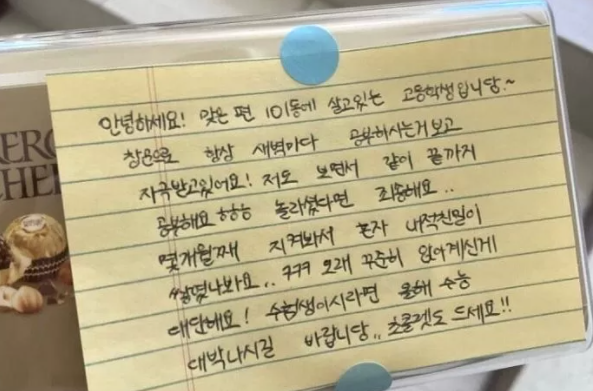 안녕하세요! 맞은 편 101동에 살고있는 고등학생입니당.~
창문으로 항상 새벽마다 공부하시는거 보고
자극받고있어요! 저도 보면서 같이 끝까지
공부해요 ㅎㅎㅎ 놀라셨다면 죄송해요..
몇개월째 지켜봐서 혼자 내적친밀이
쌓였나봐요.. ㅋㅋㅋ 오래 꾸준히 앉아계신게
대단해요! 수험생이시라면 올해 수능
대박나시길 바랍니당.. 초콜렛도 드세요!!